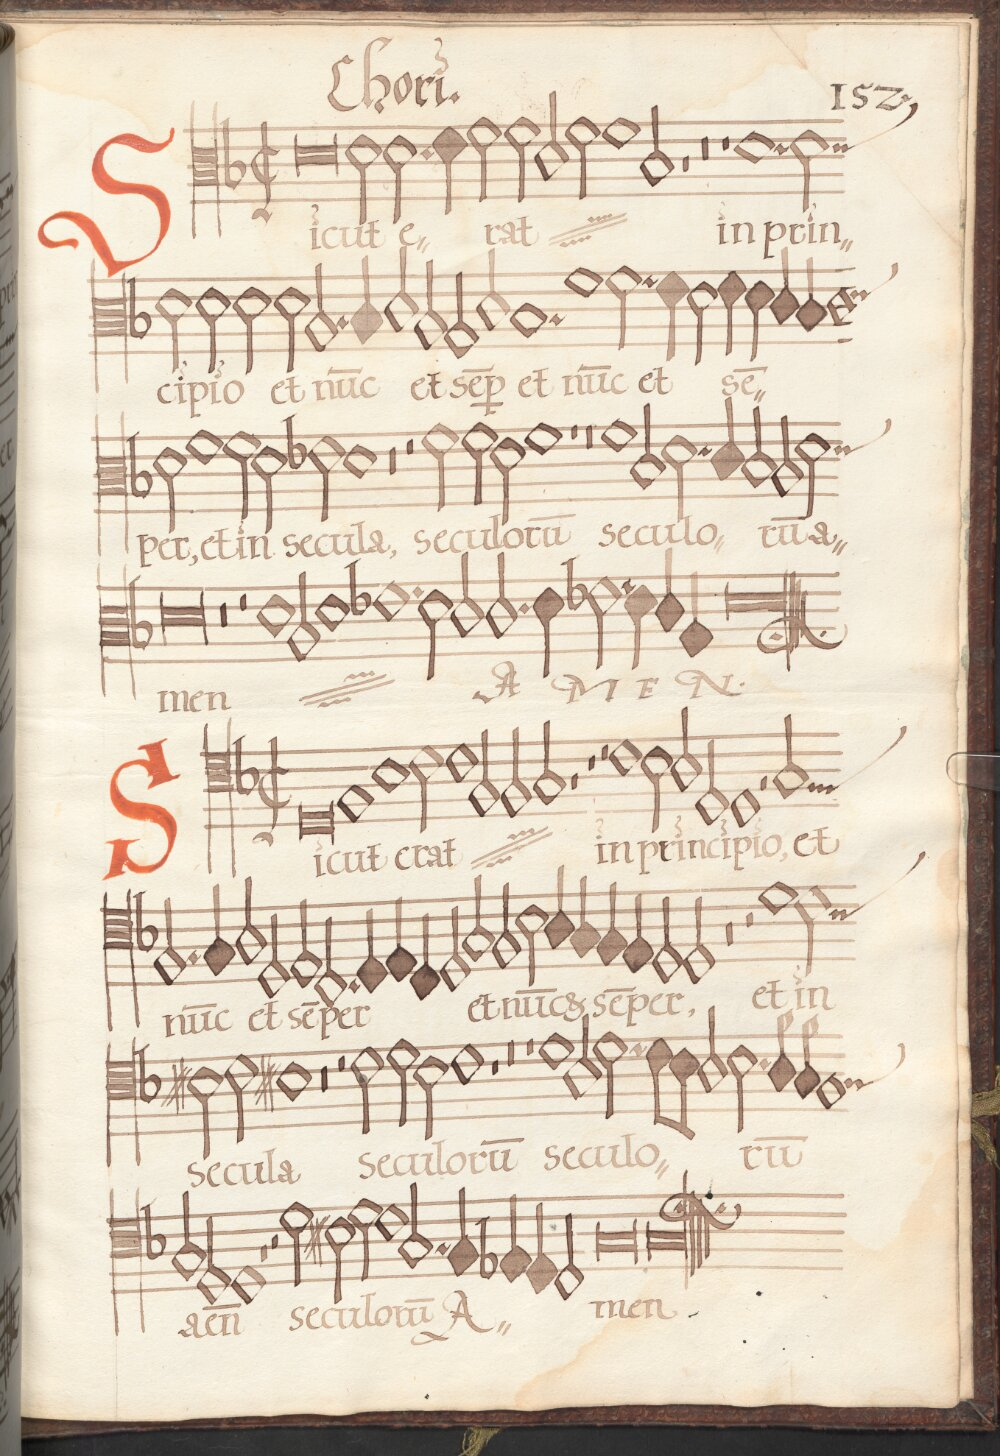 Chori.
152,
Sicut e„ rat in prin„
cipio et nūc et sēp et nūc et sē„
per, et in secula, seculorū seculo„ rū a„
men A M E N.
Sicut erat in principio, et
nūc et sēper et nūc & sēper, et in
secula seculorū seculo„ rū
aeñ seculorū A„ men